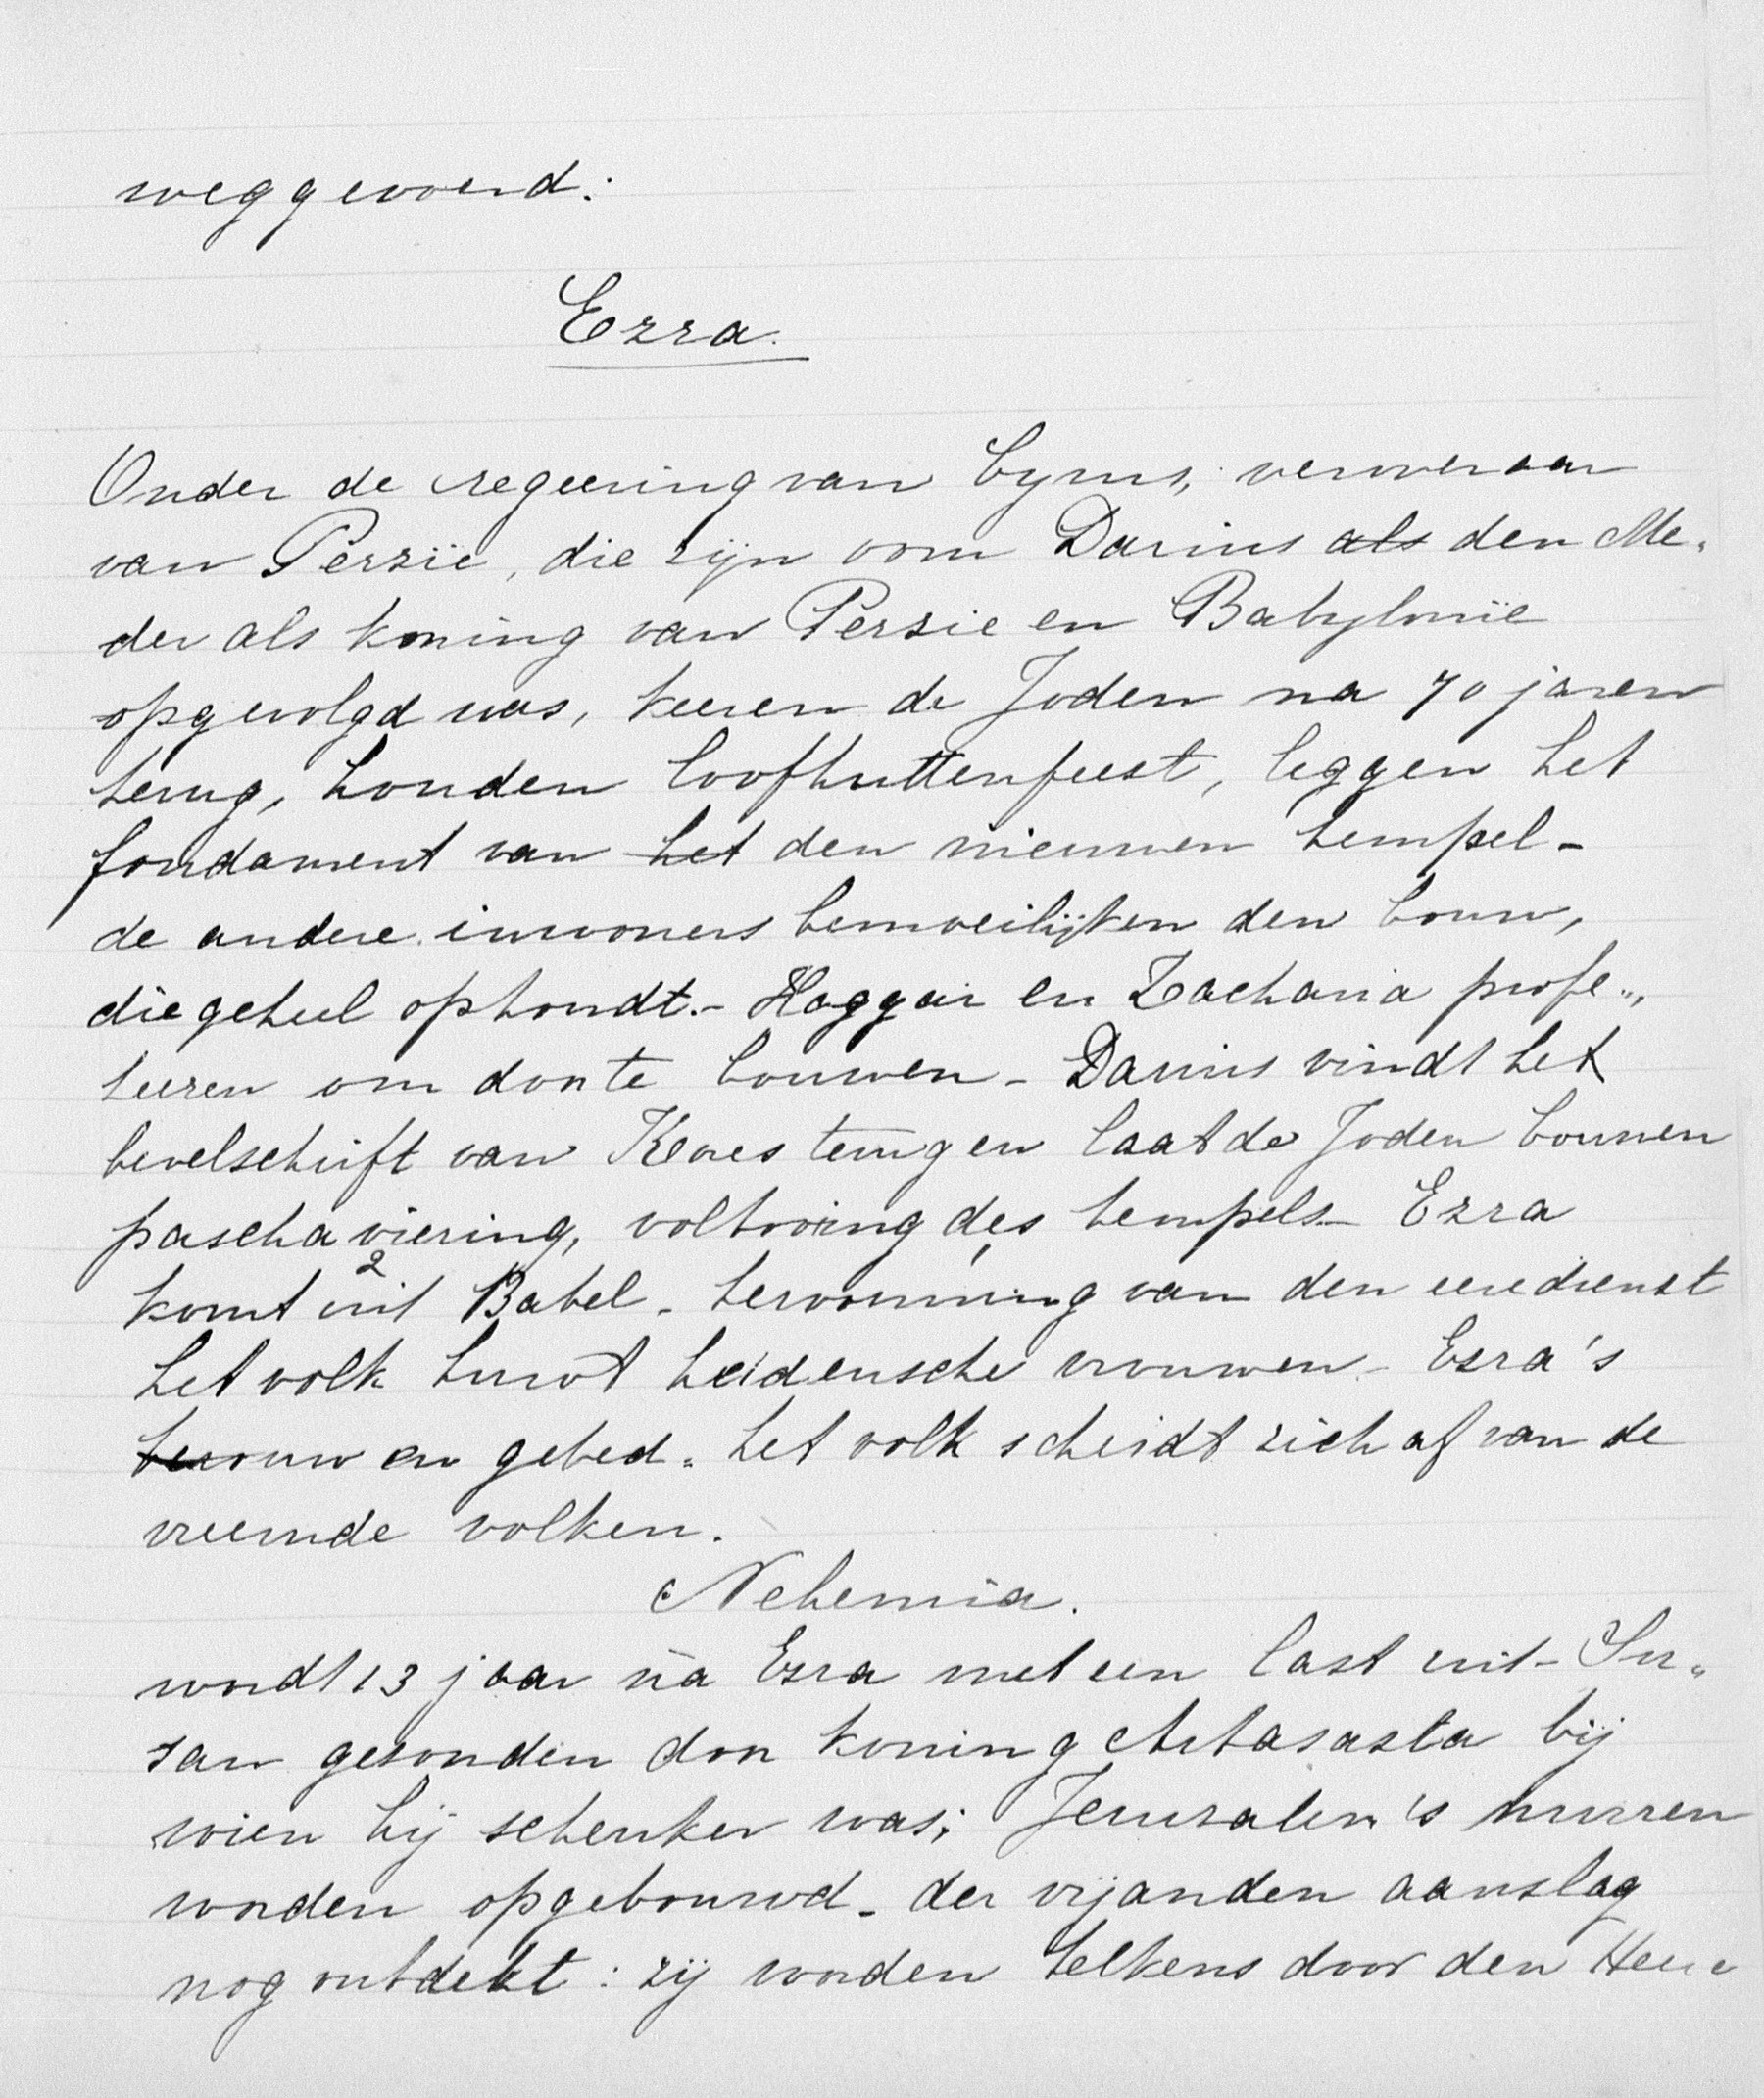 weggevoerd.
Ezra.
Onder de regeering van Cyrus, veroveraar
van Perzië, die zijn oom Darius ~~als~~ den Me-
der als koning van Perzie en Babylonië
opgevolgd was, keeren de Joden na 70 jaren
terug, houden loofhuttenfeest, leggen het
fondament van ~~het~~ den nieuwen tempel -
de andere inwoners bemoeilijken den bouw,
die geheel ophoudt. - Haggaï en Zacharia profe„
teeren om door te bouwen - Darius vindt het
bevelschrift van Kores terug en laat de Joden bouwen
pascha viering, voltooiing des tempels - Ezra
komt 2 uit Babel - hervorming van den eeredienst
het volk huwt heidensche vrouwen - Ezra's
~~be~~rouw en gebed. het volk scheidt zich af van de
vreemde volken.
Nehemia.
wordt 13 jaar na Ezra met een last uit - Su„
san gezonden door koning Arthasasta bij
wien hij schenker was; Jeruzalem's muren
worden opgebouwd - der vijanden aanslag
nog ontdekt: zij worden telkens door den Heere